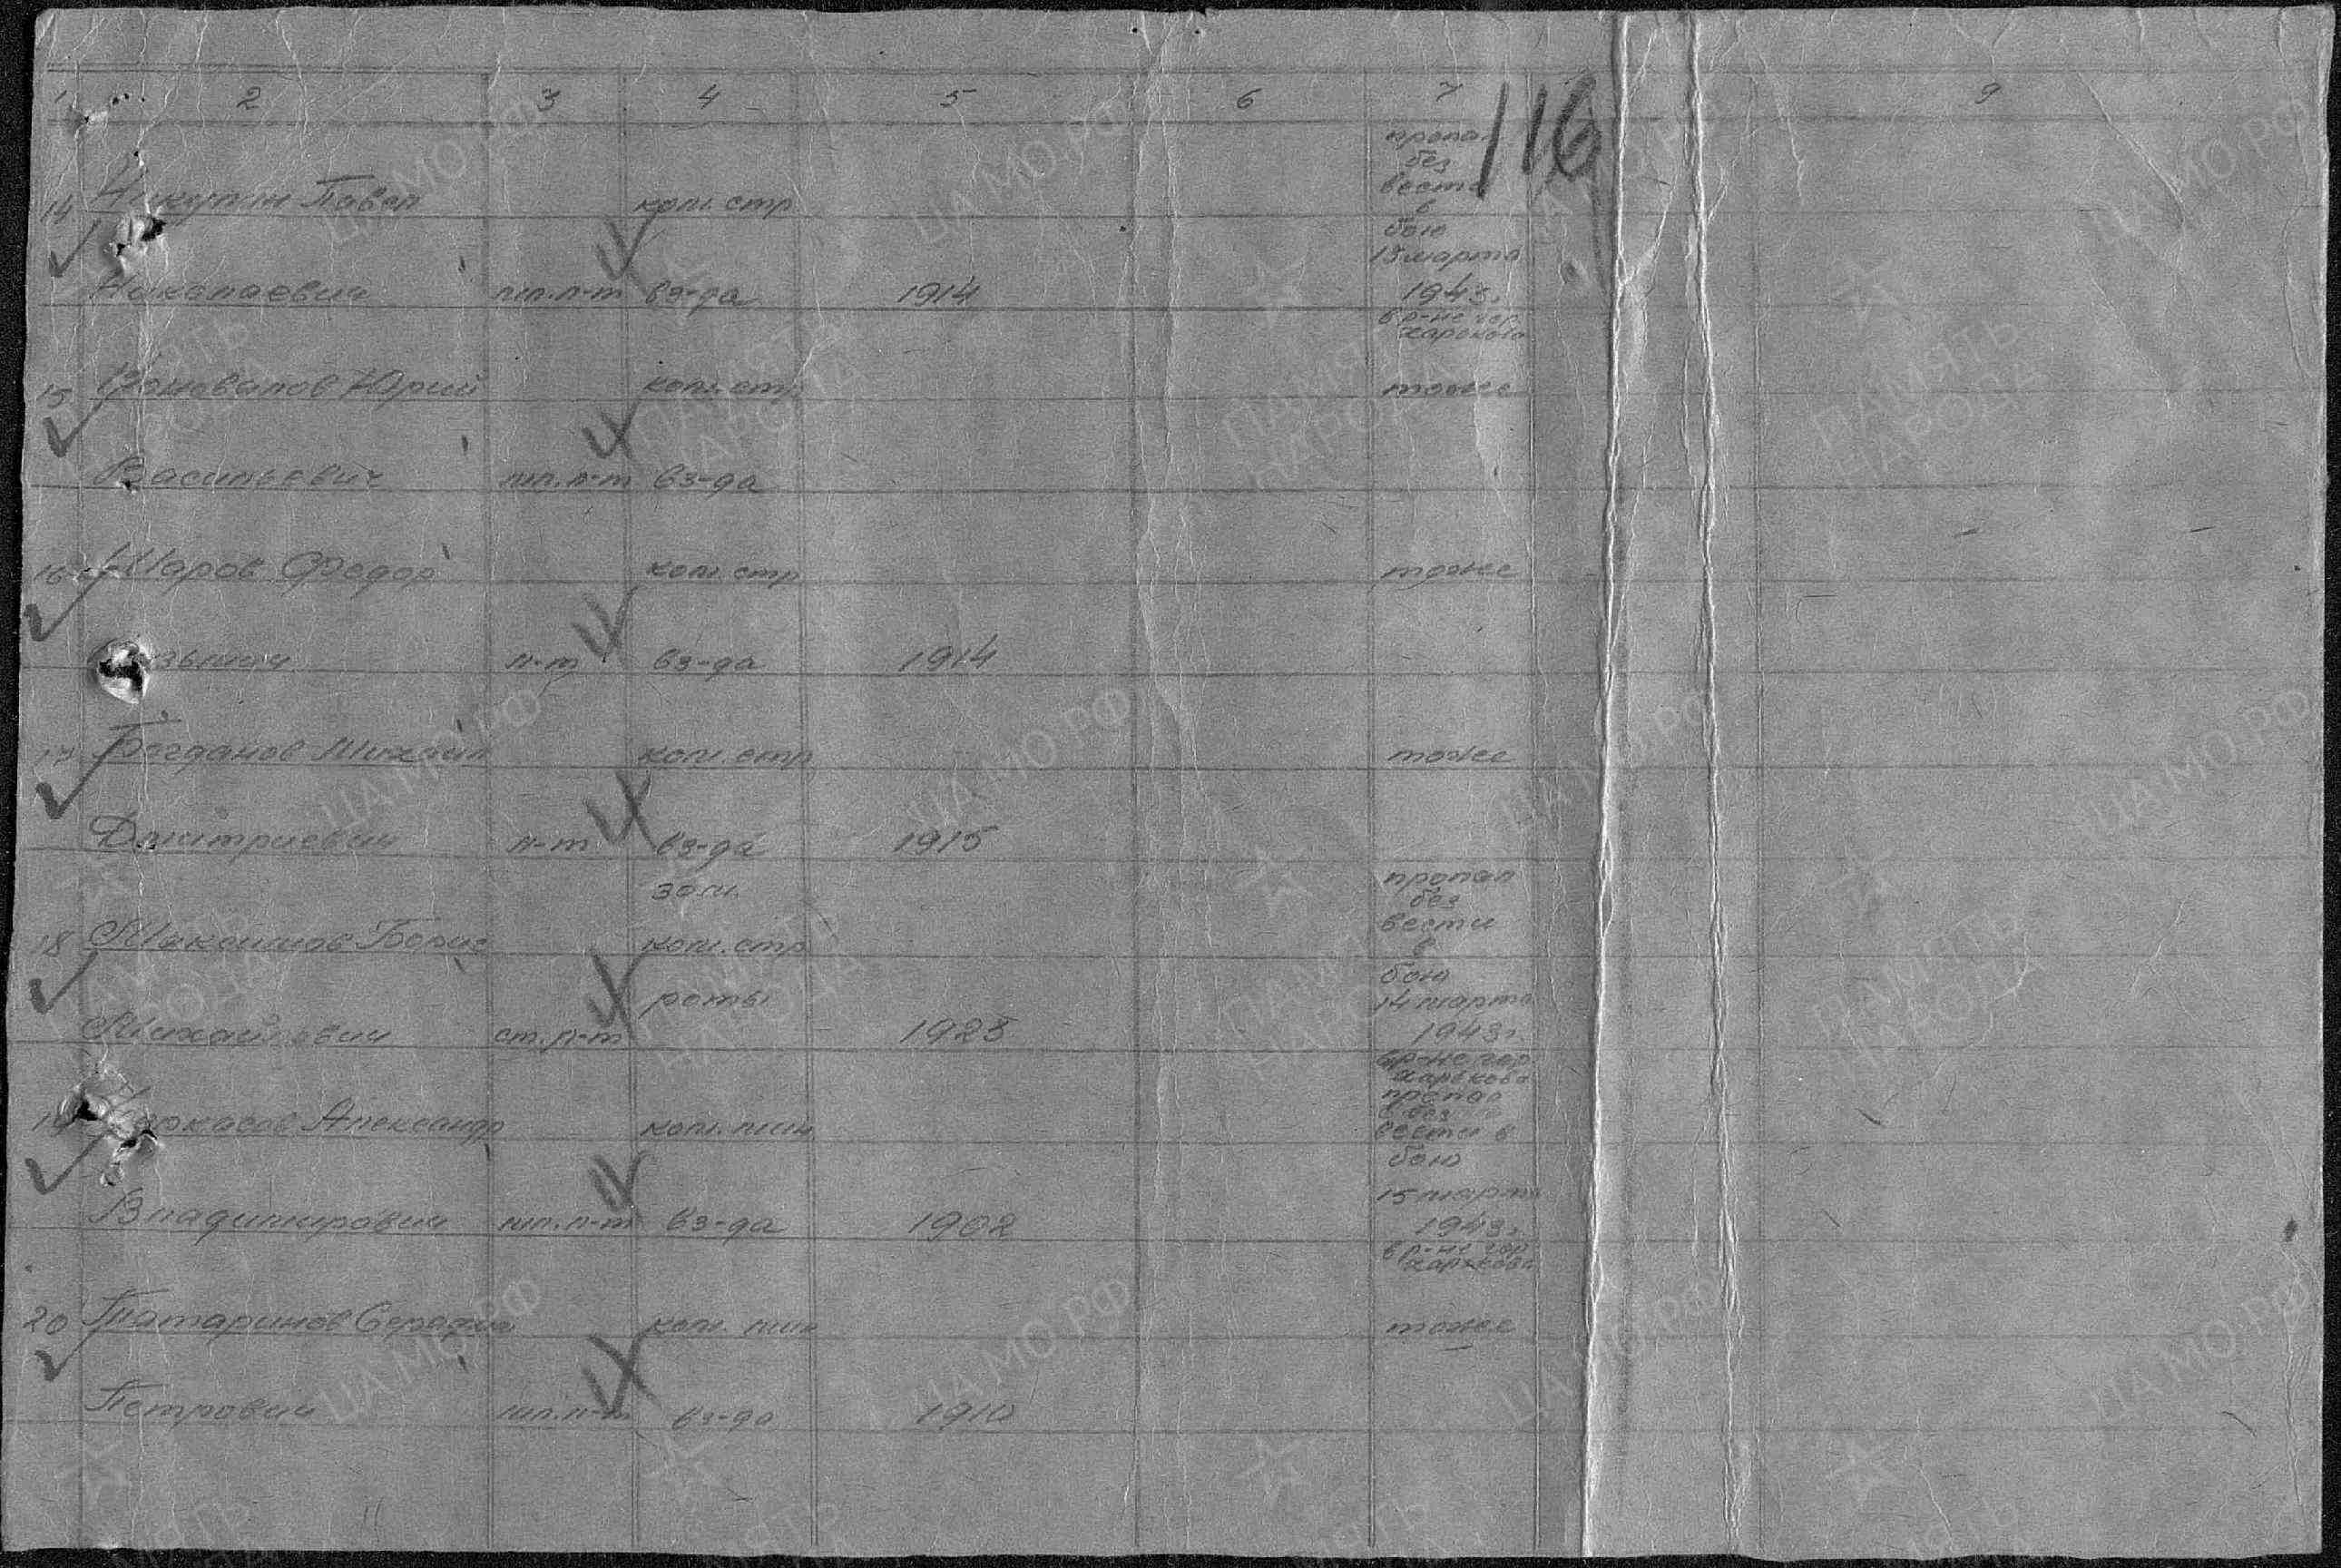 1 2 3 4 5 6 7 9
116
пропал
без
вести
в
14 Никулин Павел ком. стр
бою
13 марта
Николаевич мл. л-т вз-да 1914 1943г.
в р-не гор.
Харькова
15 Коновалов Юрий ком. стр тоже
Васильевич мл. л-т вз-да
16 Шаров Федор ком. стр тоже
л-т вз-да 1914
17 Богданов Михаил ком. стр тоже
Дмитриевич л-т вз-да 1915
зам. пропал
без
18 Максимов Борис ком. стр вести
в
бою
роты 14 марта
Михайлович ст. л-т 1923 1943г.
в р-не гор.
Харькова
пропал
без
19 Александр ком. мин вести в
бою
15 марта
Владимирович мл. л-т вз-да 1902 1943г.
в р-не гор
Харькова
20 Татаринов Серафим ком. мин тоже
Петрович мл. л-т вз-да 1910
ПАМЯТЬ НАРОДА
ЦАМО.РФ